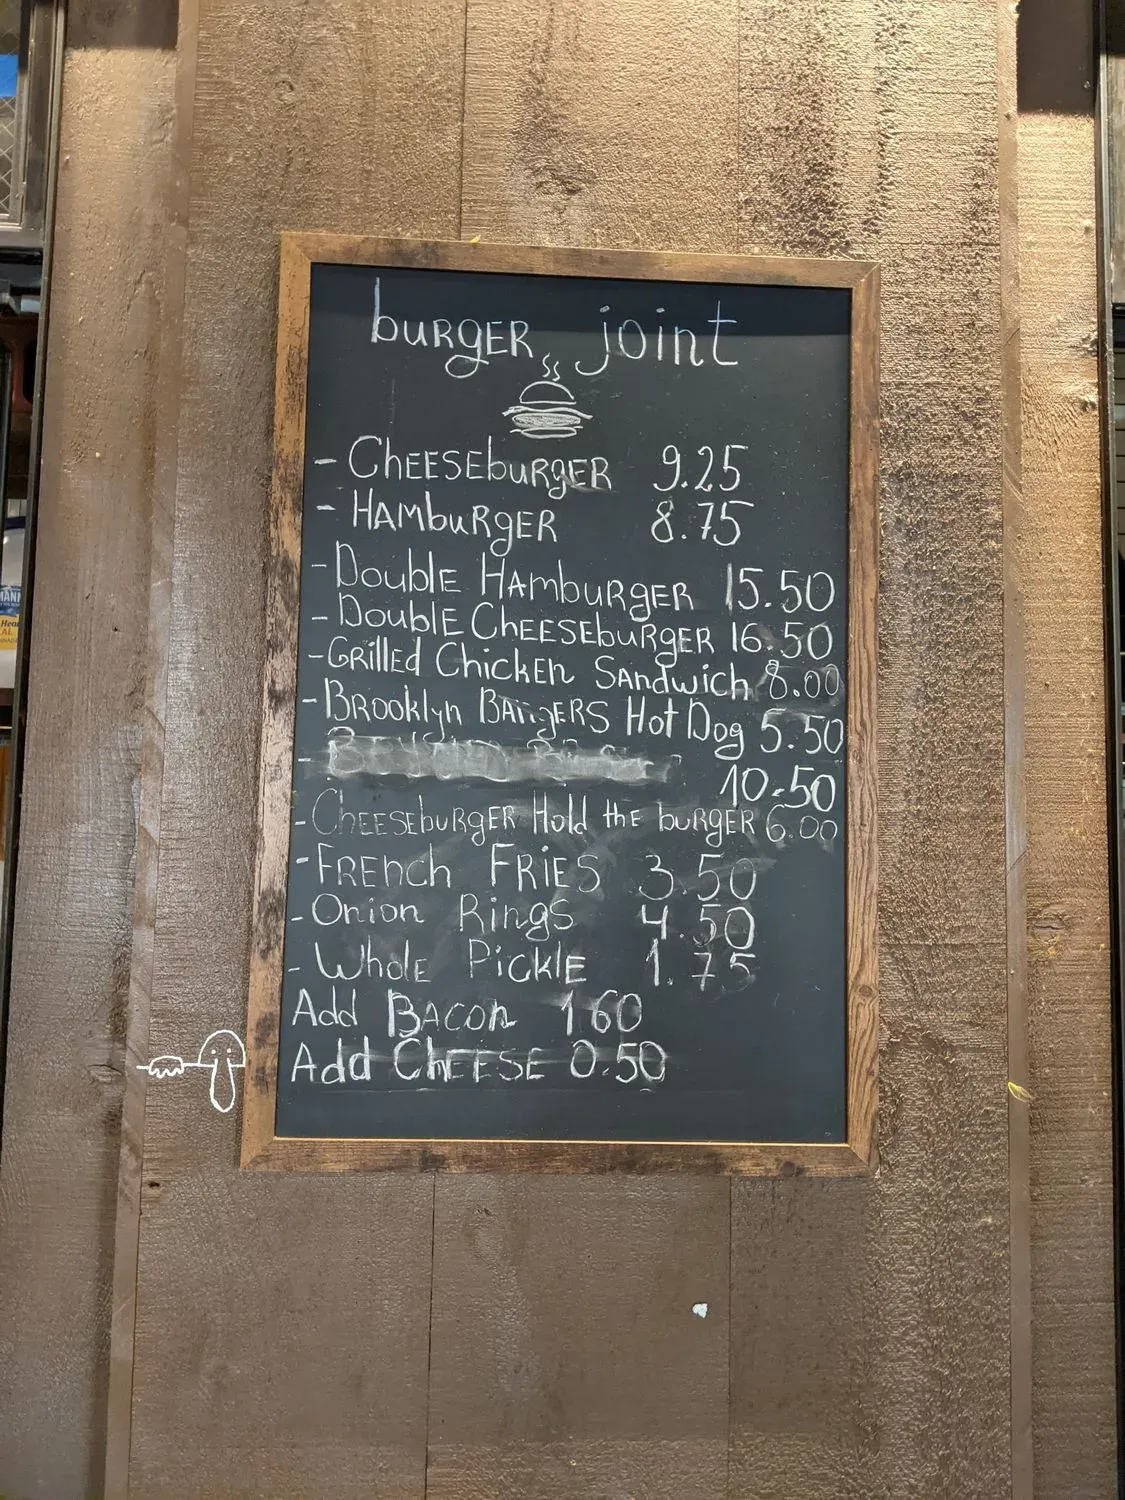 burger joint
- Cheeseburger 9.25
- Hamburger 8.75
- Double Hamburger 15.50
- Double Cheeseburger 16.50
- Grilled Chicken Sandwich 8.00
- Brooklyn Bangers Hot Dog 5.50
- 10.50
- Cheeseburger Hold the burger 6.00
- French Fries 3.50
- Onion Rings 4.50
- Whole Pickle 1.75
Add Bacon 1.60
Add Cheese 0.50